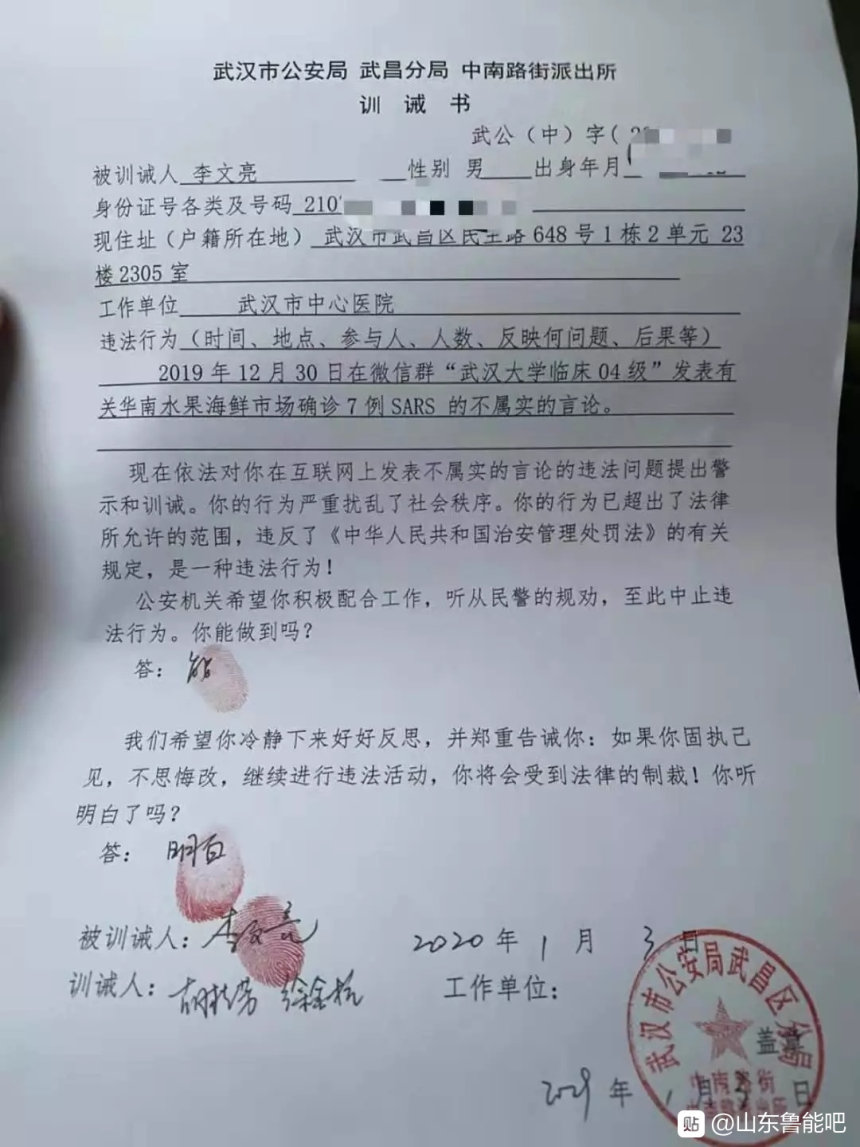 武汉市公安局 武昌分局 中南路街派出所
训 诫 书
武公（中）字（
被训诫人 李文亮 性别 男 出身年月
身份证号各类及号码 210
现住址（户籍所在地） 武汉市武昌区民主路 648 号 1 栋 2 单元 23
楼 2305 室
工作单位 武汉市中心医院
违法行为（时间、地点、参与人、人数、反映何问题、后果等）
2019 年 12 月 30 日在微信群“武汉大学临床 04 级”发表有
关华南水果海鲜市场确诊 7 例 SARS 的不属实的言论。
现在依法对你在互联网上发表不属实的言论的违法问题提出警
示和训诫。你的行为严重扰乱了社会秩序。你的行为已超出了法律
所允许的范围，违反了《中华人民共和国治安管理处罚法》的有关
规定，是一种违法行为！
公安机关希望你积极配合工作，听从民警的规劝，至此中止违
法行为。你能做到吗？
答： 能
我们希望你冷静下来好好反思，并郑重告诫你：如果你固执己
见，不思悔改，继续进行违法活动，你将会受到法律的制裁！你听
明白了吗？
答： 明白
被训诫人：李文亮 2020 年 1 月 3 日
训诫人： 工作单位：
武汉市公安局武昌区分局
盖章
中南路街
年 1 月 3 日
贴 @山东鲁能吧